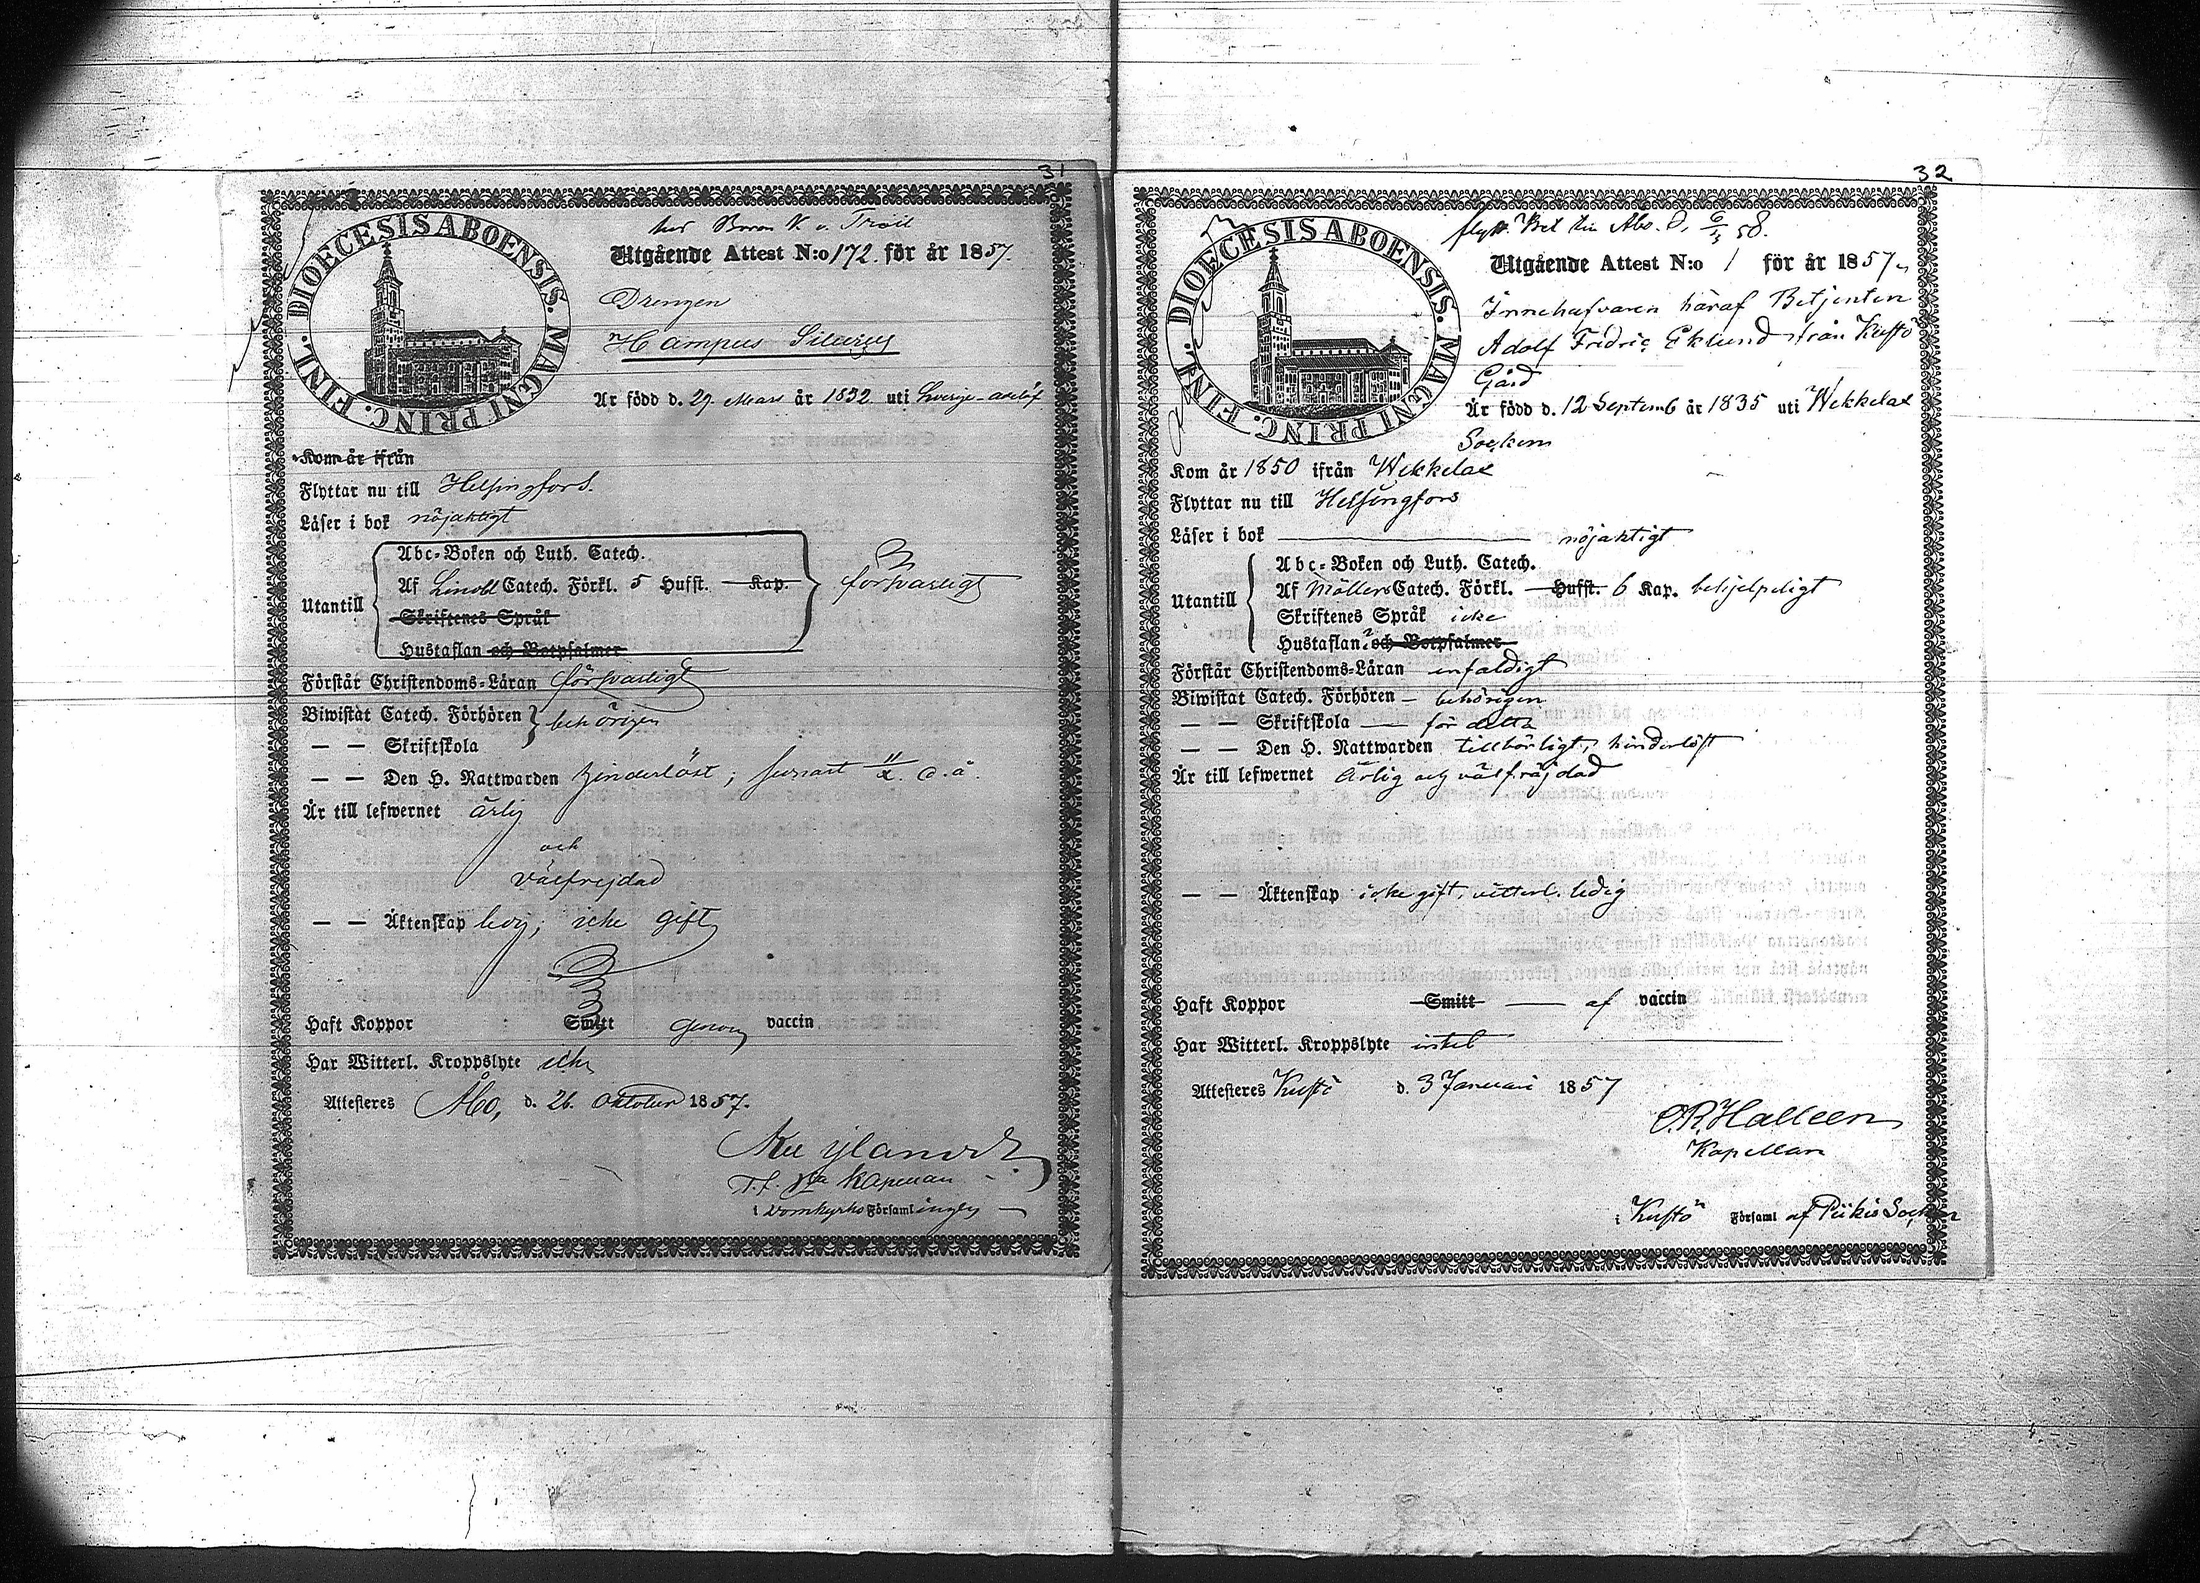 31
DIOECESIS ABOENSIS. MAGNI PRINC. FINL.
hos Baron v. Troil
Utgående Attest N:o 172. för år 1857.
Drengen
Hampus
Är född d. 29 Mars år 1832 uti Sverige
Kom år ifrån
Flyttar nu till Helsingfors.
Läser i bok nöjaktigt
Utantill
Abc-Boken och Luth. Catech.
Af Catech. Förkl. 5 Hufst. Kap.
Skriftenes Språk
Hustaflan och Botpsalmer
försvarligt
Förstår Christendoms-Läran försvarligt
Biwistat Catech. Förhören behörigen
— — Skriftskola
— — Den H. Nattwarden hinderlöst; senast 11/X. d. å.
Är till lefwernet ärlig
och
välfrejdad
— — Äktenskap ledig; icke gift
Haft Koppor Smitt genom vaccin
Har Witterl. Kroppslyte icke
Attesteres Åbo, d. 26. Oktober 1857.
T. f. Kapellan
i Domkyrko Församlingen
32
DIOECESIS ABOENSIS. MAGNI PRINC. FINL.
flytt. Bet. till Åbo. d. 6/3 58.
Utgående Attest N:o 1 för år 1857.
Innehafvaren häraf Betjenten
Adolf Fredric Eklund från Kustö
Gård
Är född d. 12 Septemb år 1835 uti Wekkelax
Socken
Kom år 1850 ifrån Wekkelax
Flyttar nu till Helsingfors
Läser i bok nöjaktigt
Utantill
Abc-Boken och Luth. Catech.
Af Möllers Catech. Förkl. — Hufst. 6 Kap. behjelpeligt
Skriftenes Språk icke
Hustaflan och Botpsalmer
Förstår Christendoms-Läran enfaldigt
Biwistat Catech. Förhören — behörigen
— — Skriftskola — för detta
— — Den H. Nattwarden tillbörligt, hinderlöst
Är till lefwernet Ärlig och välfräjdad
— — Äktenskap icke gift, vitterl. ledig
Haft Koppor Smitt — af vaccin
Har Witterl. Kroppslyte intet
Attesteres Kustö d. 3 Januari 1857
Halleen
Kapellan
i Kustö Församl af Piikis Socken